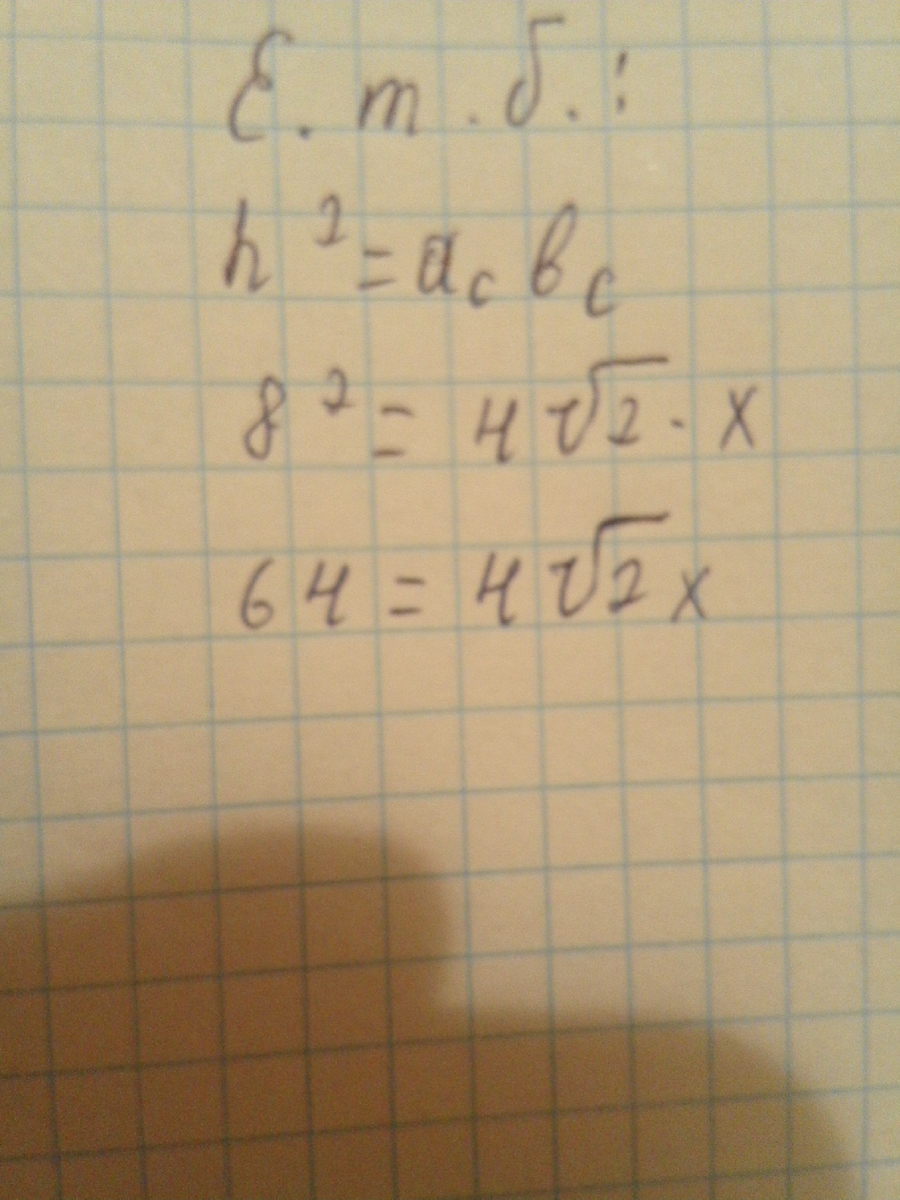 Е. т. б.:
h² = a_c b_c
8² = 4√2 · x
64 = 4√2 x